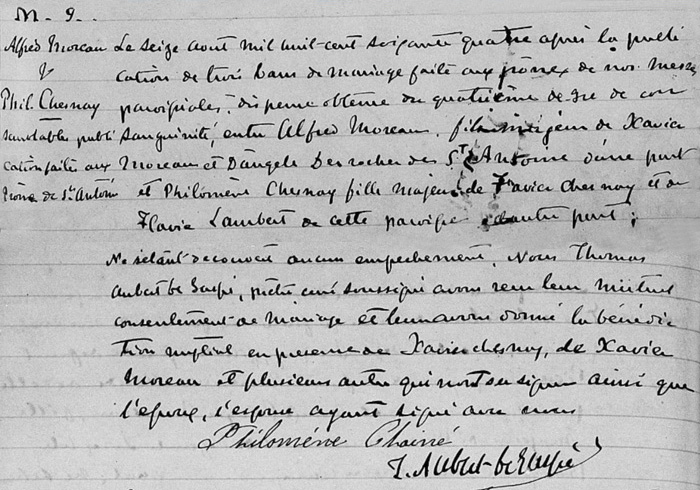 M - 9.
Alfred Moreau
&
Phil. Chesnay
semblable publi
cation faite aux
Prône de St Antoine
Le seize aout mil huit-cent soixante quatre après la publi
cation de trois bans de mariage faite aux prônes de nos messes
paroissiales, dispense obtenue du quatrième degré de con
sanguinité, entre Alfred Moreau, fils majeur de Xavier
Moreau et d'Angele Desrocher de St Antoine d'une part
et Philomène Chesnay fille majeure de Xavier Chesnay et de
Flavie Lambert de cette paroisse d'autre part;
Ne s'étant découvert aucun empechement, Nous Thomas
Aubert de Gaspé, prêtre curé soussigné avons reçu leur mutuel
consentement de mariage et leur avons donné la bénédic
tion nuptiale en presence de Xavier Chesnay, de Xavier
Moreau et plusieurs autres qui n'ont su signer ainsi que
l'epoux, l'epouse ayant signé avec nous
Philomène Chainé
T. Aubert de Gaspé